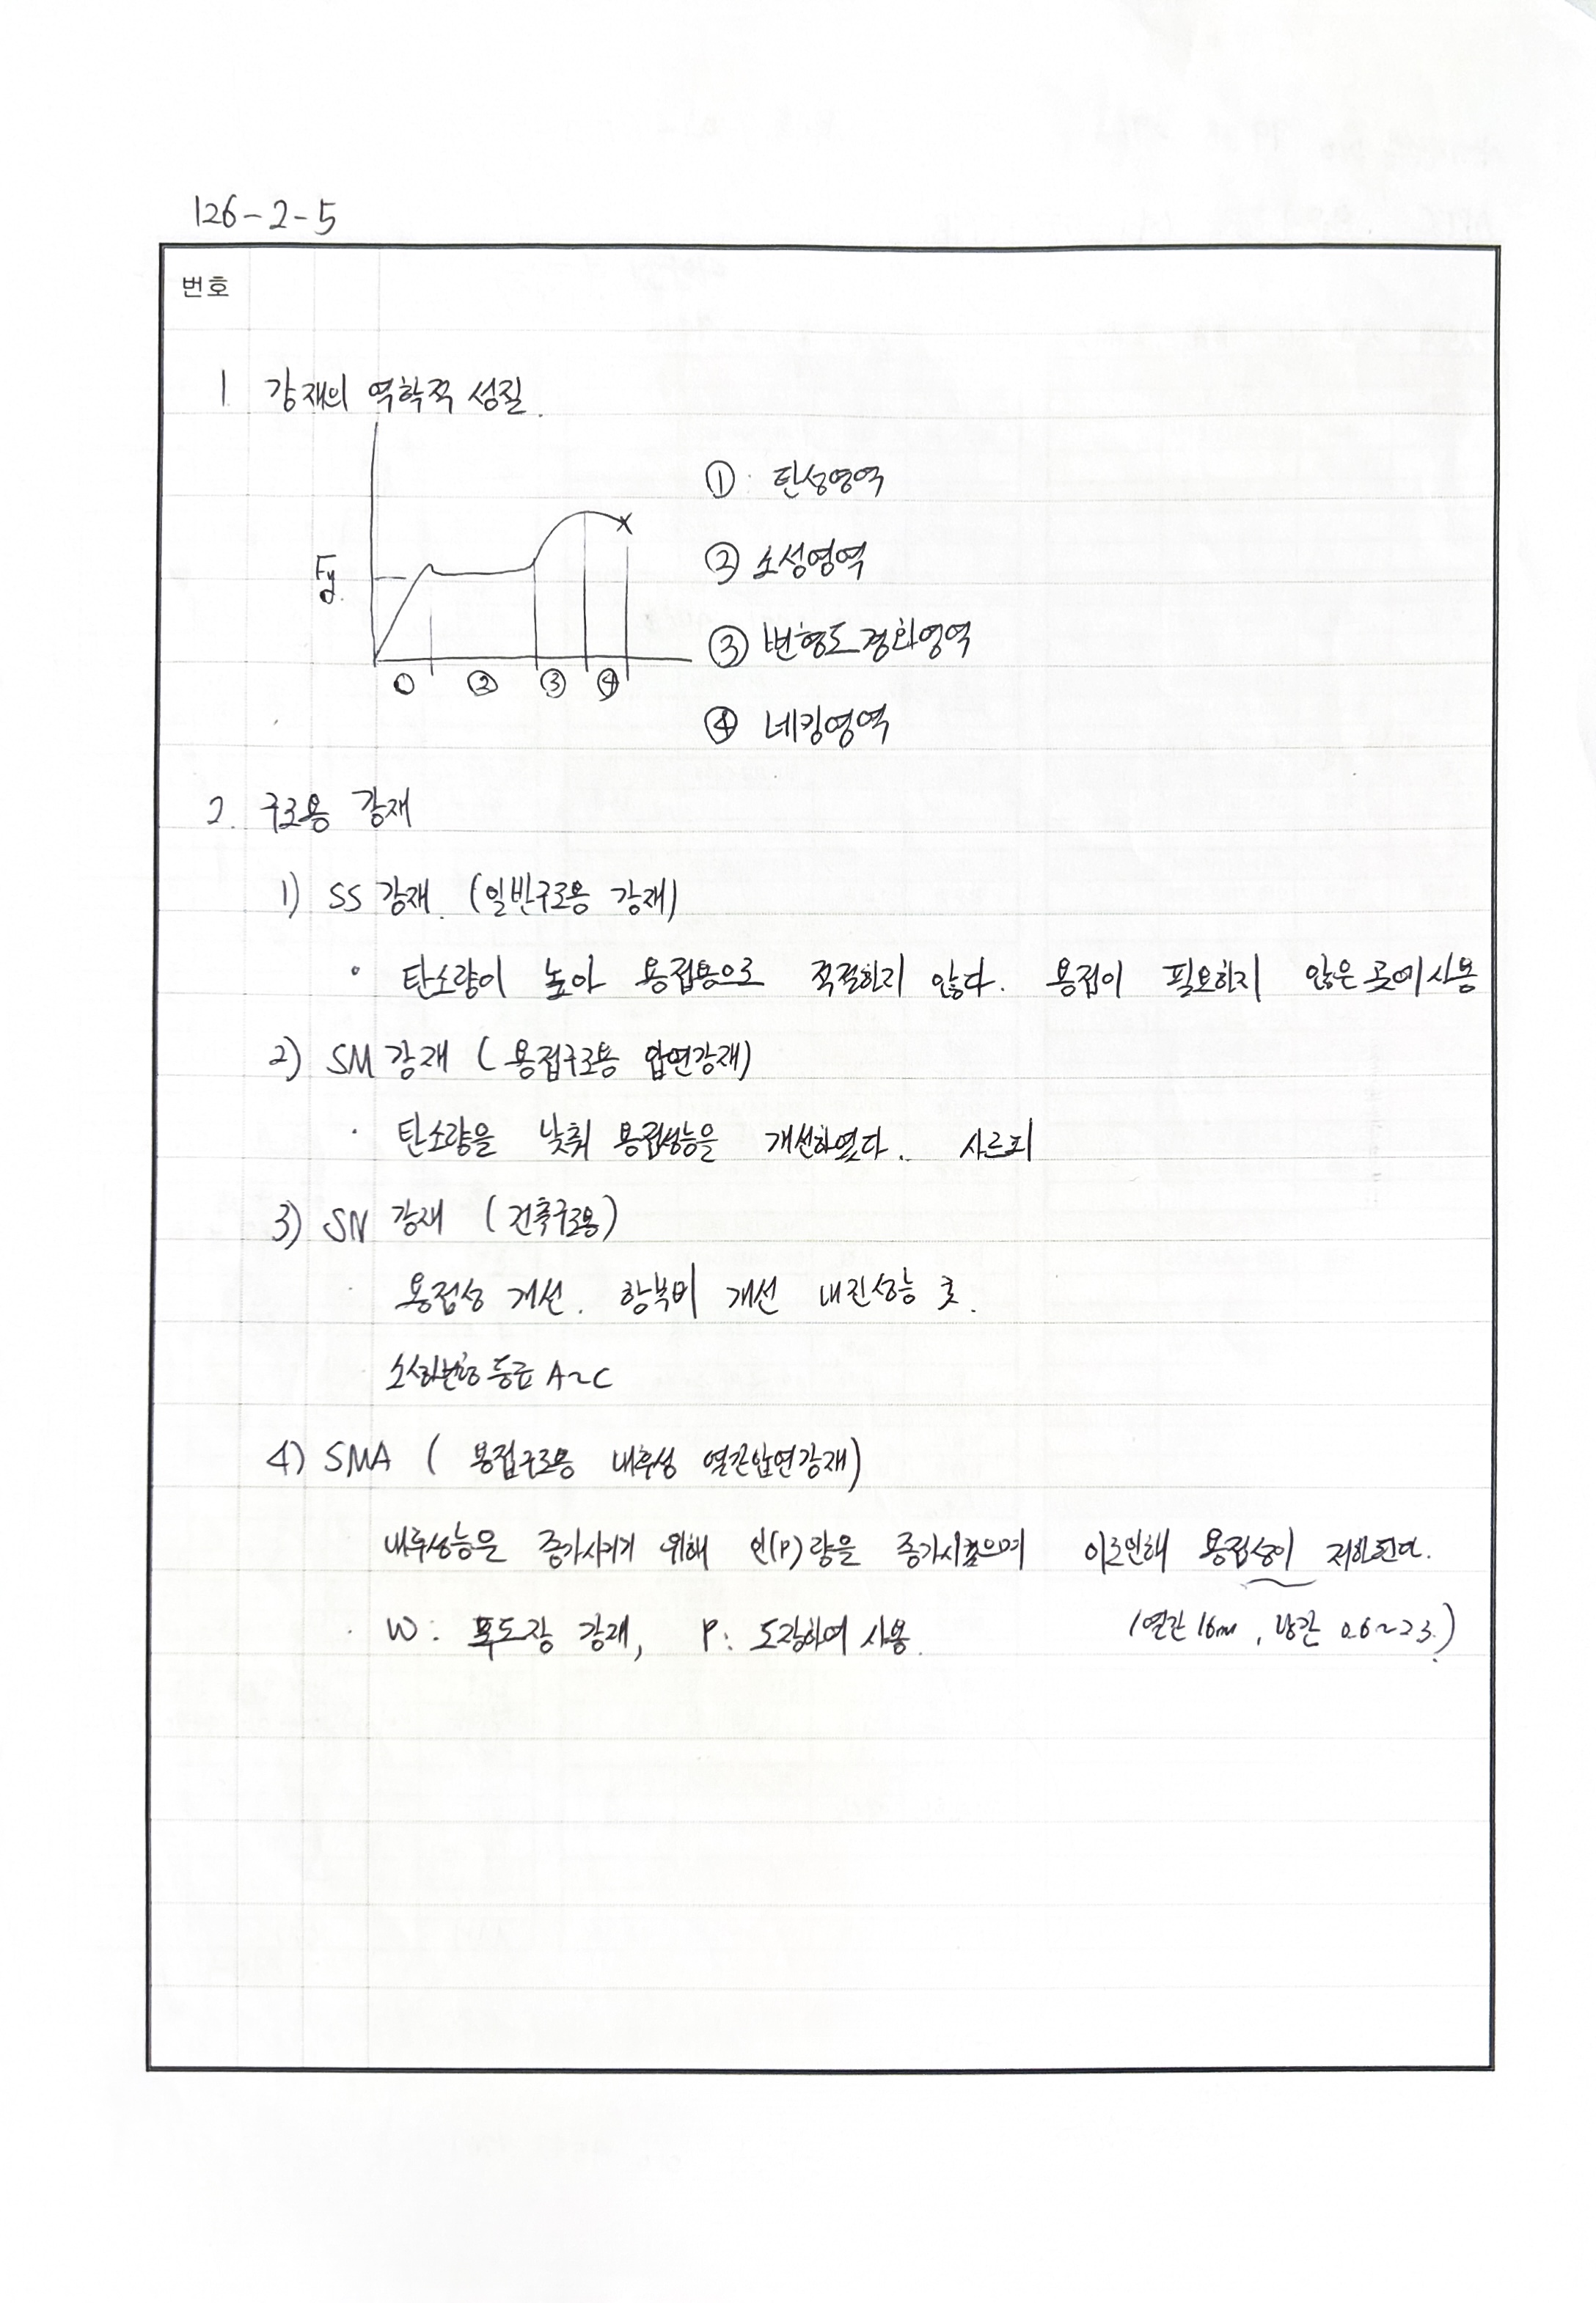 126-2-5
번호
1 강재의 역학적 성질.
Fy
① : 탄성영역
② 소성영역
③ 변형도경화영역
① ② ③ ④
④ 네킹영역
2. 구조용 강재
1) SS 강재. (일반구조용 강재)
• 탄소량이 높아 용접용으로 적절하지 않다. 용접이 필요하지 않은 곳에 사용
2) SM 강재 ( 용접구조용 압연강재)
· 탄소량을 낮춰 용접성능을 개선하였다.
3) SN 강재 (건축구조용)
· 용접성 개선. 항복비 개선 내진성능
소성변형 등급 A~C
4) SMA ( 용접구조용 내후성 열간압연강재)
내후성능을 증가시키기 위해 인(P)량을 증가시켰으며 이로인해 용접성이 저하된다.
· W : 무도장 강재, P : 도장하여 사용.
(열간 16mm, 냉간 0.6~2.3.)